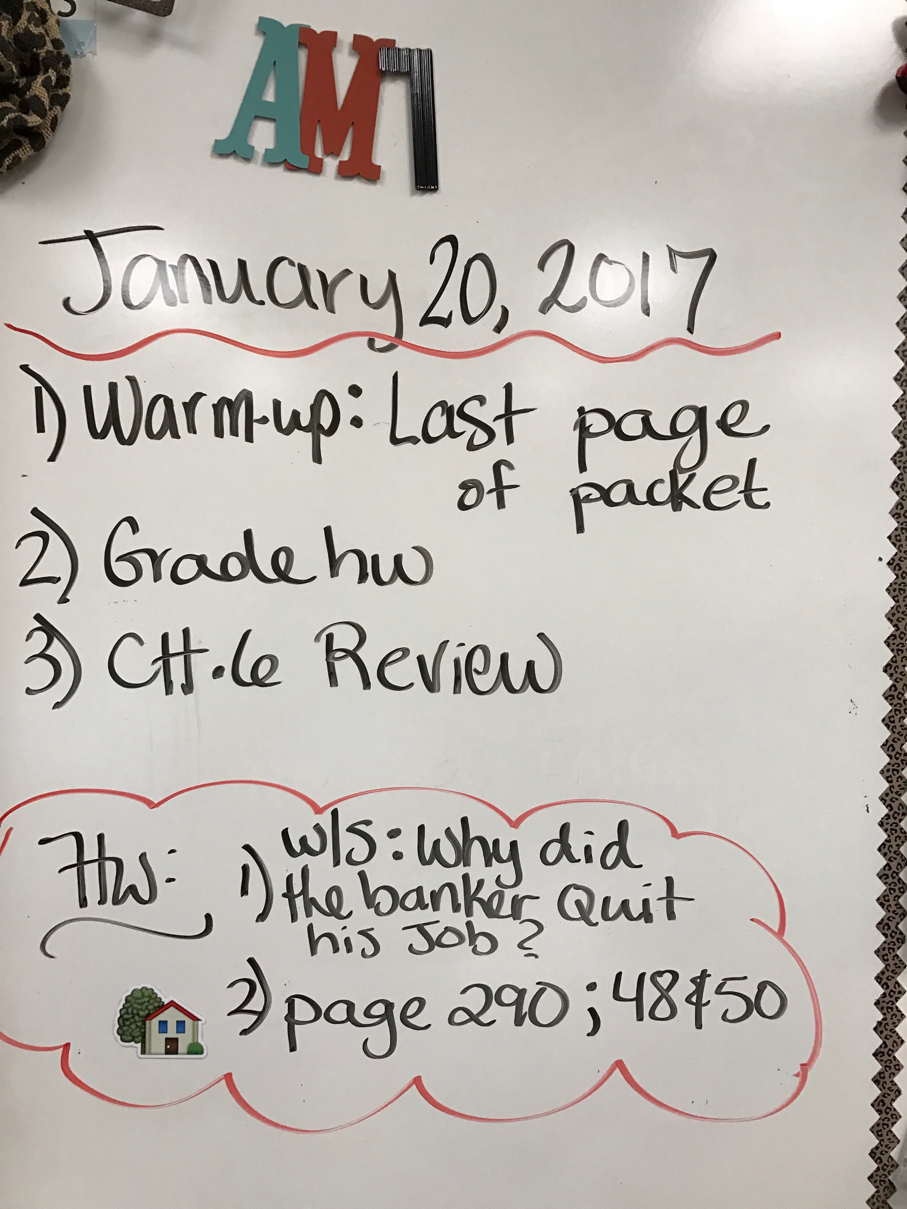 AM7
January 20, 2017
1) Warm-up: Last page
of packet
2) Grade hw
3) CH.6 Review
HW: 1) w/s: Why did
the banker Quit
his Job?
2) page 290; 48 & 50